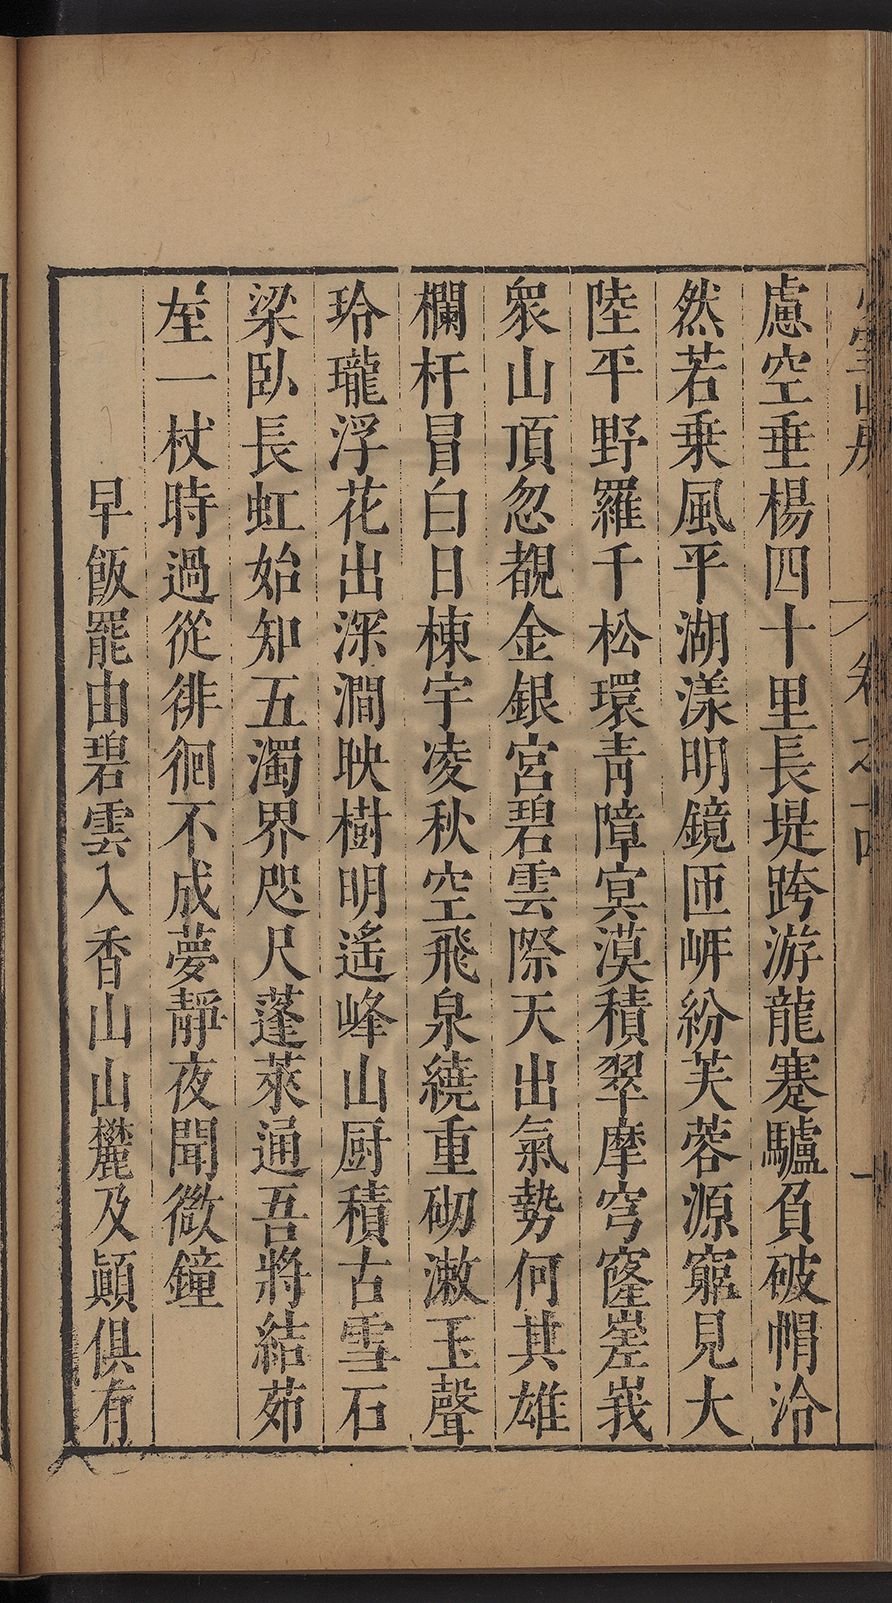 卷之十四
慮空垂楊四十里長堤跨游龍蹇驢負破帽泠
然若乗風平湖漾明鏡匝㟁紛芙蓉源窮見大
陸平野羅千松環靑障㝠漠積翠摩穹窿嵳峩
衆山頂忽覩金銀宮碧雲際天出氣勢何其雄
欄杆冒白日棟宇凌秋空飛泉繞重砌漱玉聲
玲瓏浮花出深澗映樹明遙峰山厨積古雪石
梁臥長虹始知五濁界咫尺蓬萊通吾將結茆
在一杖時過從徘徊不成夢靜夜聞微鐘
早飯罷由碧雲入香山山麓及顚俱有